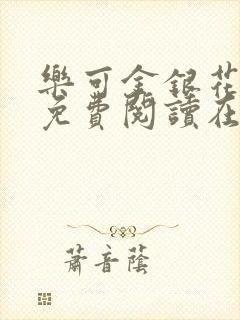 樂可金銀花
免費閱讀在
蕭音蔭